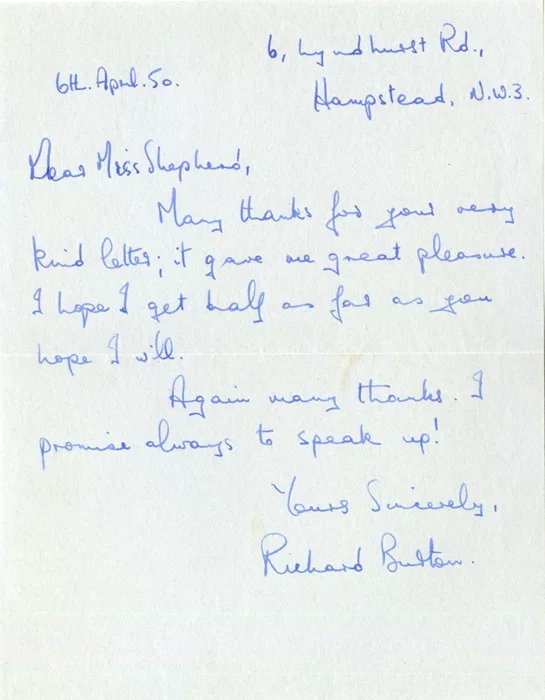 6, Lyndhurst Rd.,
6th. April. 50.
Hampstead, N.W.3.
Dear Miss Shepherd,
Many thanks for your very
kind letter; it gave me great pleasure.
I hope I get half as far as you
hope I will.
Again many thanks. I
promise always to speak up!
Yours Sincerely,
Richard Burton.